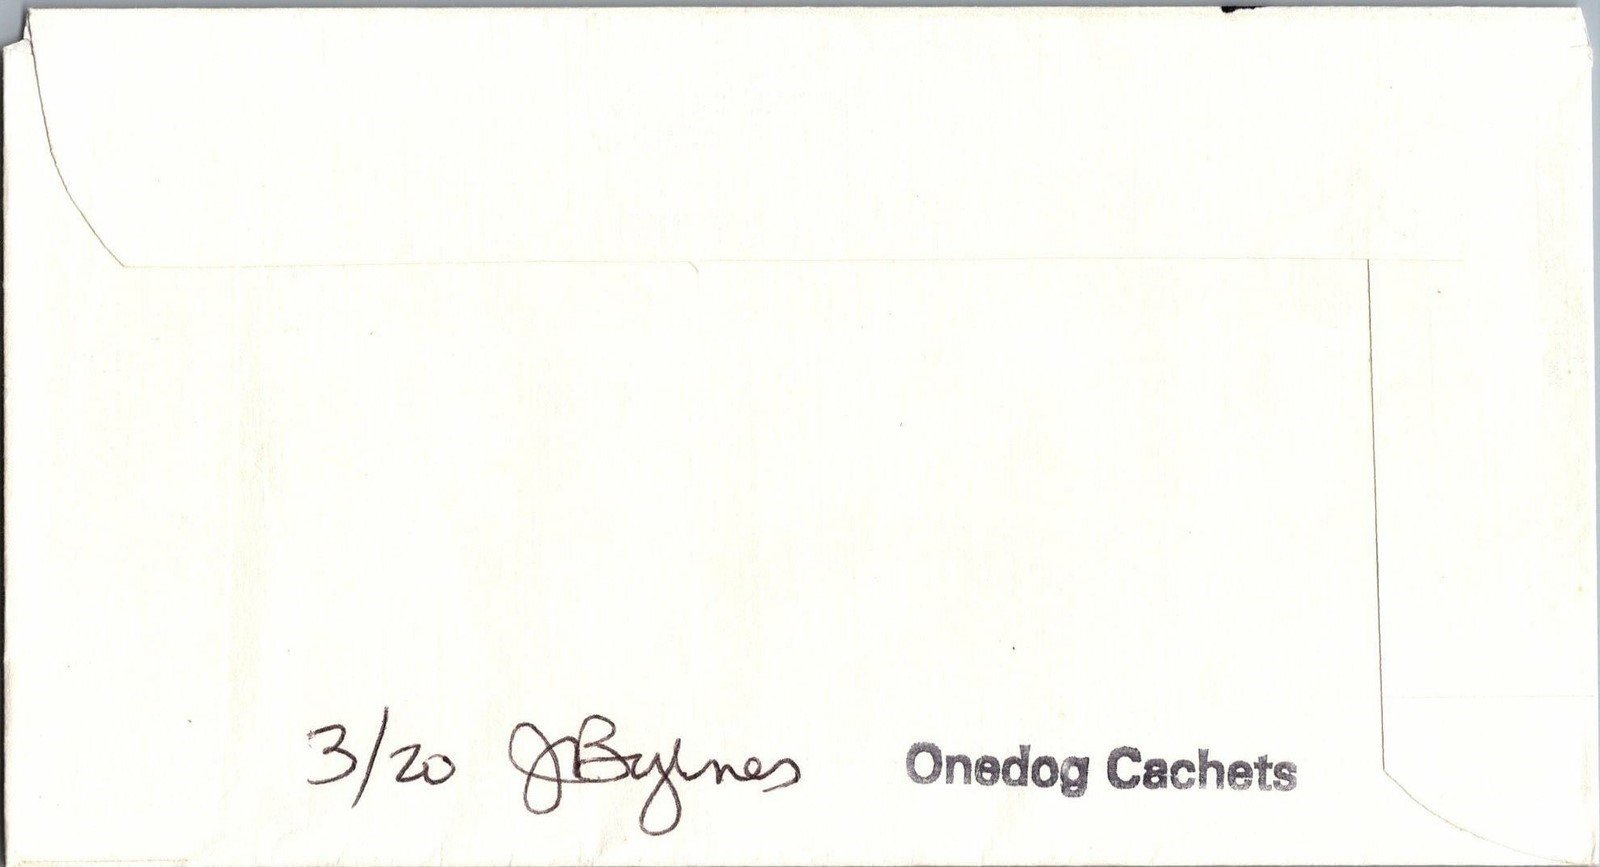 3/20 J Byrnes Onedog Cachets